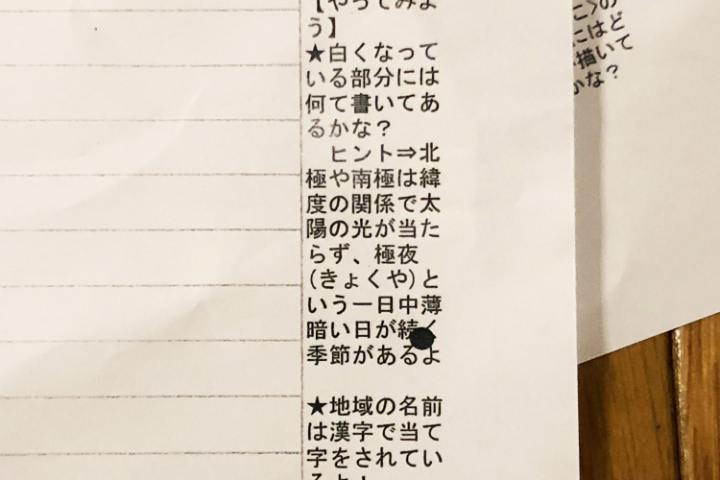 【やってみよ
う】
★白くなって
いる部分には
何て書いてあ
るかな？
　ヒント⇒北
極や南極は緯
度の関係で太
陽の光が当た
らず、極夜
(きょくや)と
いう一日中薄
暗い日が続く
季節があるよ
★地域の名前
は漢字で当て
字をされてい
るよ！
こ>の
にはど
描いて
かな？